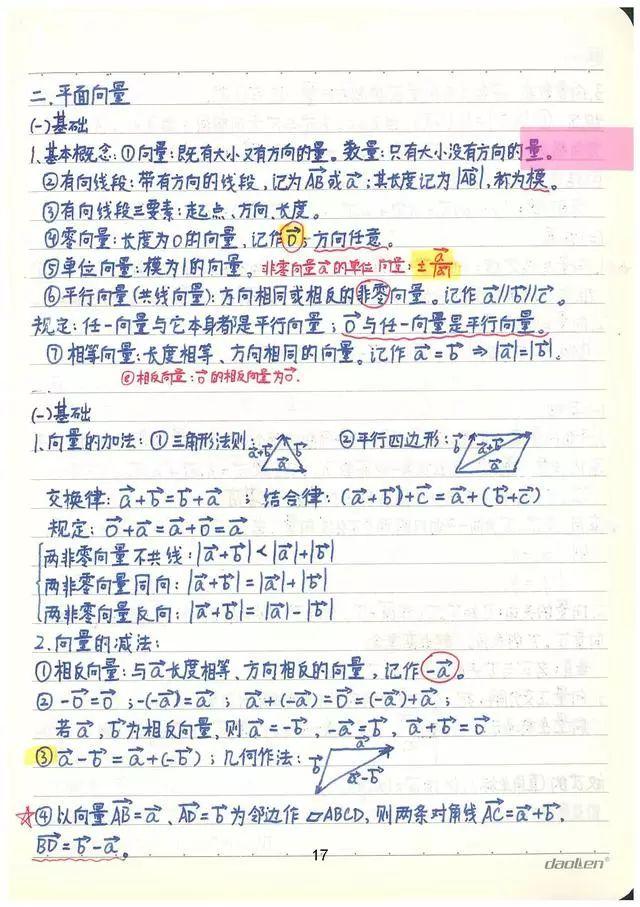 二.平面向量
(一)基础
1.基本概念:①向量:既有大小又有方向的量。数量:只有大小没有方向的量。
②有向线段:带有方向的线段,记为AB⃗或a⃗;其长度记为|AB⃗|,称为模。
③有向线段三要素:起点、方向、长度。
④零向量:长度为0的向量,记作0⃗;方向任意。
⑤单位向量:模为1的向量。非零向量a⃗的单位向量:±a⃗/|a⃗|
⑥平行向量(共线向量):方向相同或相反的非零向量。记作a⃗∥b⃗∥c⃗。
规定:任一向量与它本身都是平行向量;0⃗与任一向量是平行向量。
⑦相等向量:长度相等、方向相同的向量。记作a⃗=b⃗⇒|a⃗|=|b⃗|。
⑧相反向量:0⃗的相反向量为0⃗.
(一)基础
1.向量的加法:①三角形法则: a⃗+b⃗ a⃗ ②平行四边形: b⃗ a⃗+b⃗ a⃗
交换律:a⃗+b⃗=b⃗+a⃗;结合律:(a⃗+b⃗)+c⃗=a⃗+(b⃗+c⃗)
规定:0⃗+a⃗=a⃗+0⃗=a⃗
两非零向量不共线:|a⃗+b⃗|<|a⃗|+|b⃗|
两非零向量同向:|a⃗+b⃗|=|a⃗|+|b⃗|
两非零向量反向:|a⃗+b⃗|=|a⃗|-|b⃗|
2.向量的减法:
①相反向量:与a⃗长度相等、方向相反的向量,记作-a⃗。
②-0⃗=0⃗;-(-a⃗)=a⃗;a⃗+(-a⃗)=0⃗=(-a⃗)+a⃗;
若a⃗,b⃗为相反向量,则a⃗=-b⃗,-a⃗=b⃗,a⃗+b⃗=0⃗
③a⃗-b⃗=a⃗+(-b⃗);几何作法: b⃗ a⃗ a⃗-b⃗
☆④以向量AB⃗=a⃗、AD⃗=b⃗为邻边作▱ABCD,则两条对角线AC⃗=a⃗+b⃗,
BD⃗=b⃗-a⃗。
17
daolen®